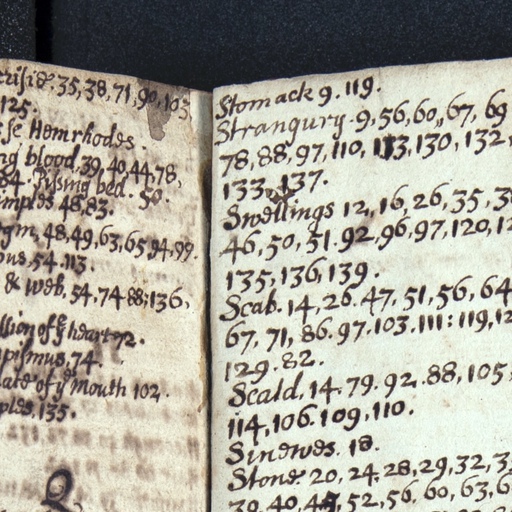 35, 38, 71, 90, 103,
125.
Hemrhodes.
blood, 39, 40, 44, 78,
Pissing bed. 50.
48, 83.
48, 49, 63, 65, 94, 99.
54. 113.
& web, 54, 74 88; 136,
of yᵉ heart 72.
74.
of yᵉ Mouth 102.
135.
Stomack 9. 119.
Strangury. 9, 56, 60, 67, 69
78, 88, 97, 110, 113, 130, 132,
133, 137.
Swellings 12, 16, 26, 35, 3
46, 50, 51. 92, 96, 97, 120, 12
135, 136, 139.
Scab. 14, 26. 47. 51, 56, 64
67, 71, 86. 97. 103. 111: 119, 12
129. 82.
Scald, 14. 79. 92. 88, 105,
114, 106. 109, 110.
Sinewes. 18.
Stone. 20, 24, 28, 29, 32, 3
39, 40, 52, 56. 60, 63, 6